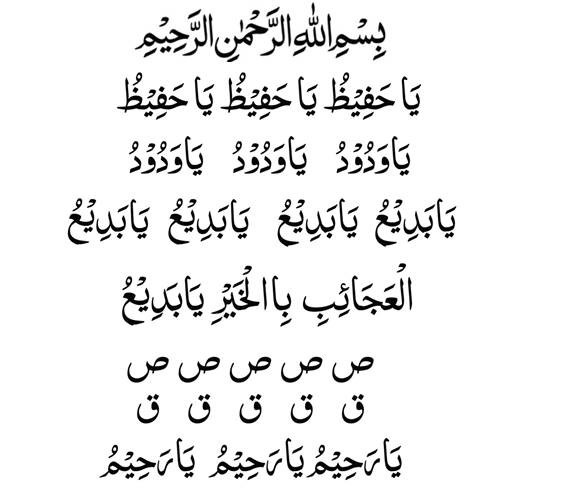 بِسْمِ اللهِ الرَّحْمٰنِ الرَّحِيْمِ
يَا حَفِيْظُ يَا حَفِيْظُ يَا حَفِيْظُ
يَاوَدُوْدُ يَاوَدُوْدُ يَاوَدُوْدُ
يَابَدِيْعُ يَابَدِيْعُ يَابَدِيْعُ يَابَدِيْعُ
الْعَجَائِبِ بِا الْخَيْرِ يَابَدِيْعُ
ص ص ص ص ص
ق ق ق ق ق
يَارَحِيْمُ يَارَحِيْمُ يَارَحِيْمُ